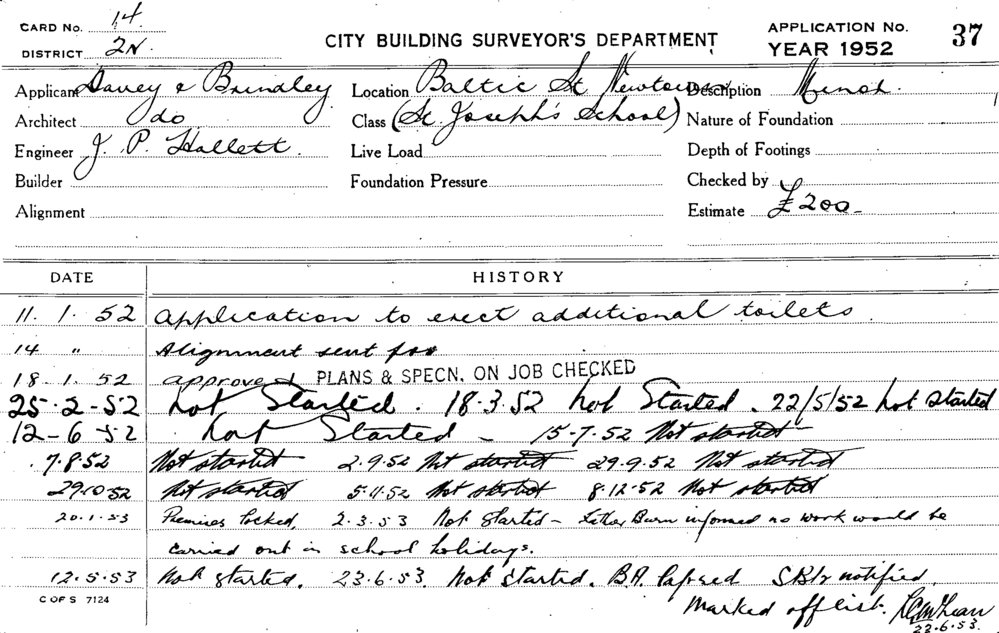 CARD No. 14
DISTRICT 2N.
CITY BUILDING SURVEYOR'S DEPARTMENT
APPLICATION No. 37
YEAR 1952
Applicant Davey & Brindley Location Baltic St Newtown Description Minor.
Architect do Class (St. Joseph's School) Nature of Foundation
Engineer J. P. Hallett. Live Load Depth of Footings
Builder Foundation Pressure Checked by
Alignment Estimate £200-
DATE HISTORY
11. 1. 52 Application to erect additional toilets.
14 " Alignment sent for
18. 1. 52 approved PLANS & SPECN. ON JOB CHECKED
25-2-52 Not Started. 18-3-52 Not Started. 22/5/52 Not Started
12-6-52 Not Started - 15-7-52 Not started
7.8.52 Not started 2.9.52 Not started 29.9.52 Not started
29.10.52 Not started 5.11.52 Not started 8.12.52 Not started
20.1.53 Premises locked, 2.3.53 Not started - informed no work would be
carried out in school holidays.
12.5.53 Not started. 23.6.53. Not started. B.A. lapsed notified.
Marked off list.
C OF S 7124
23.6.53.